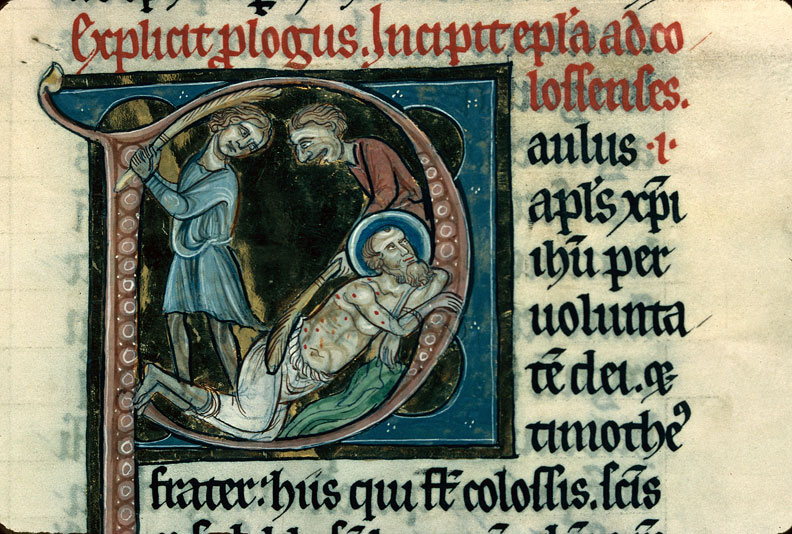 Explicit plogus. Incipit epl̄a ad co
lossenses.
Paulus ·i·
apl̄s xp̄i
ih̄u per
uolunta
tē dei. &
timotheꝰ
frater: hiis qui st̄ colossis. sc̄is